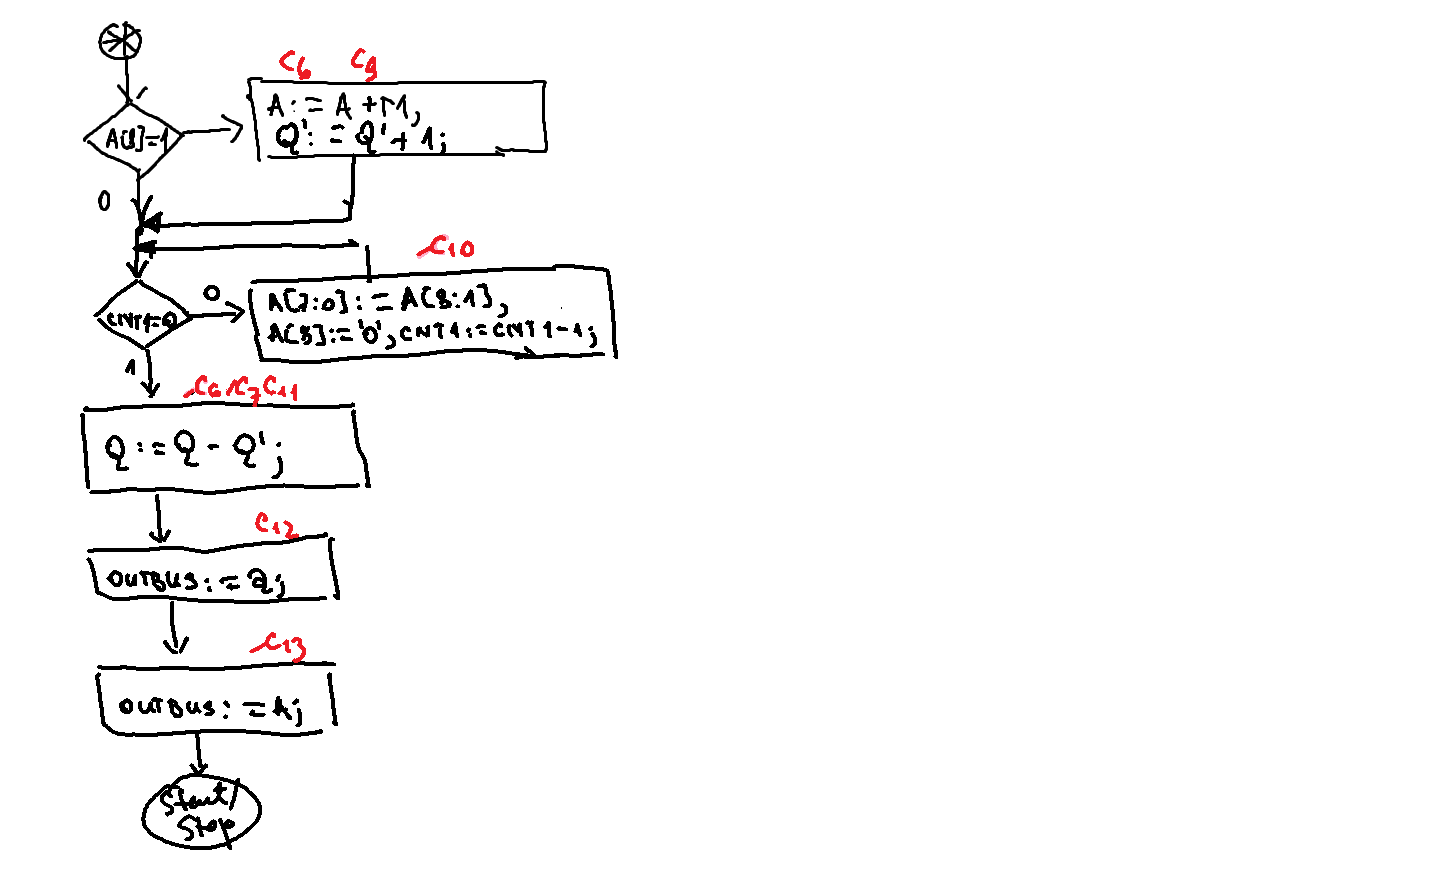 *
C6 C9
A[8]=1
A := A + M,
Q' := Q' + 1;
0
C10
CNT1=0
0
A[7:0] := A[8:1],
A[8] := '0', CNT1 := CNT1 - 1;
1
C6 C7 C11
Q := Q - Q';
C12
OUTBUS := Q;
C13
OUTBUS := A;
Start/
Stop